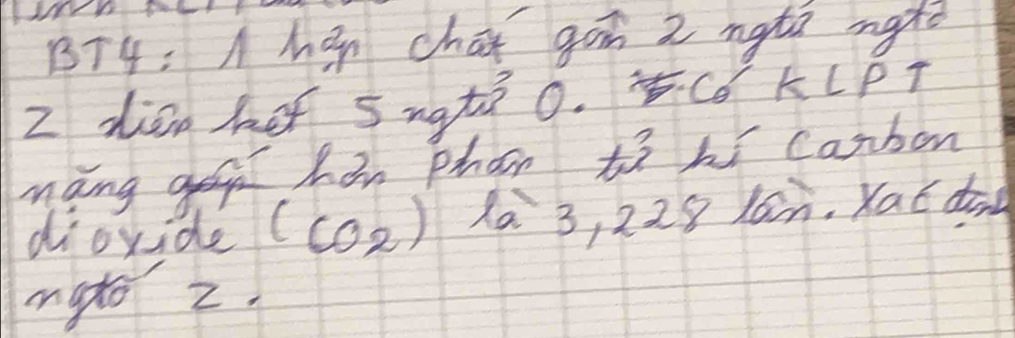 BT4: 1 hợp chất gồm 2 ngtử ngtố
Z liên kết 5 ngtử O. Có KLPT
nặng hơn phân tử khí Carbon
dioxide (CO2) là 3,228 lần. Xác định
ngtố Z.